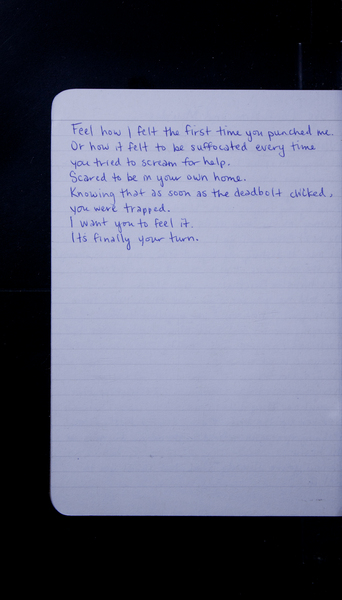 Feel how I felt the first time you punched me.
Or how it felt to be suffocated every time
you tried to scream for help.
Scared to be in your own home.
Knowing that as soon as the deadbolt clicked,
you were trapped.
I want you to feel it.
Its finally your turn.